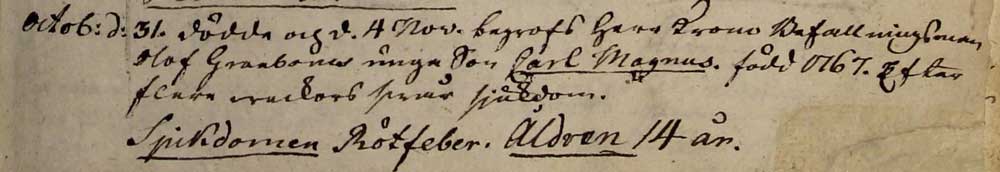 Octob: d: 31. dödde och d. 4 Nov. begrofs Herr Krono Befallningsman
Olof Graeboms unga Son Carl Magnus. född 1767. Efter
flere veckors svår sjukdom.
Sjukdomen Rötfeber. Åldren 14 år.